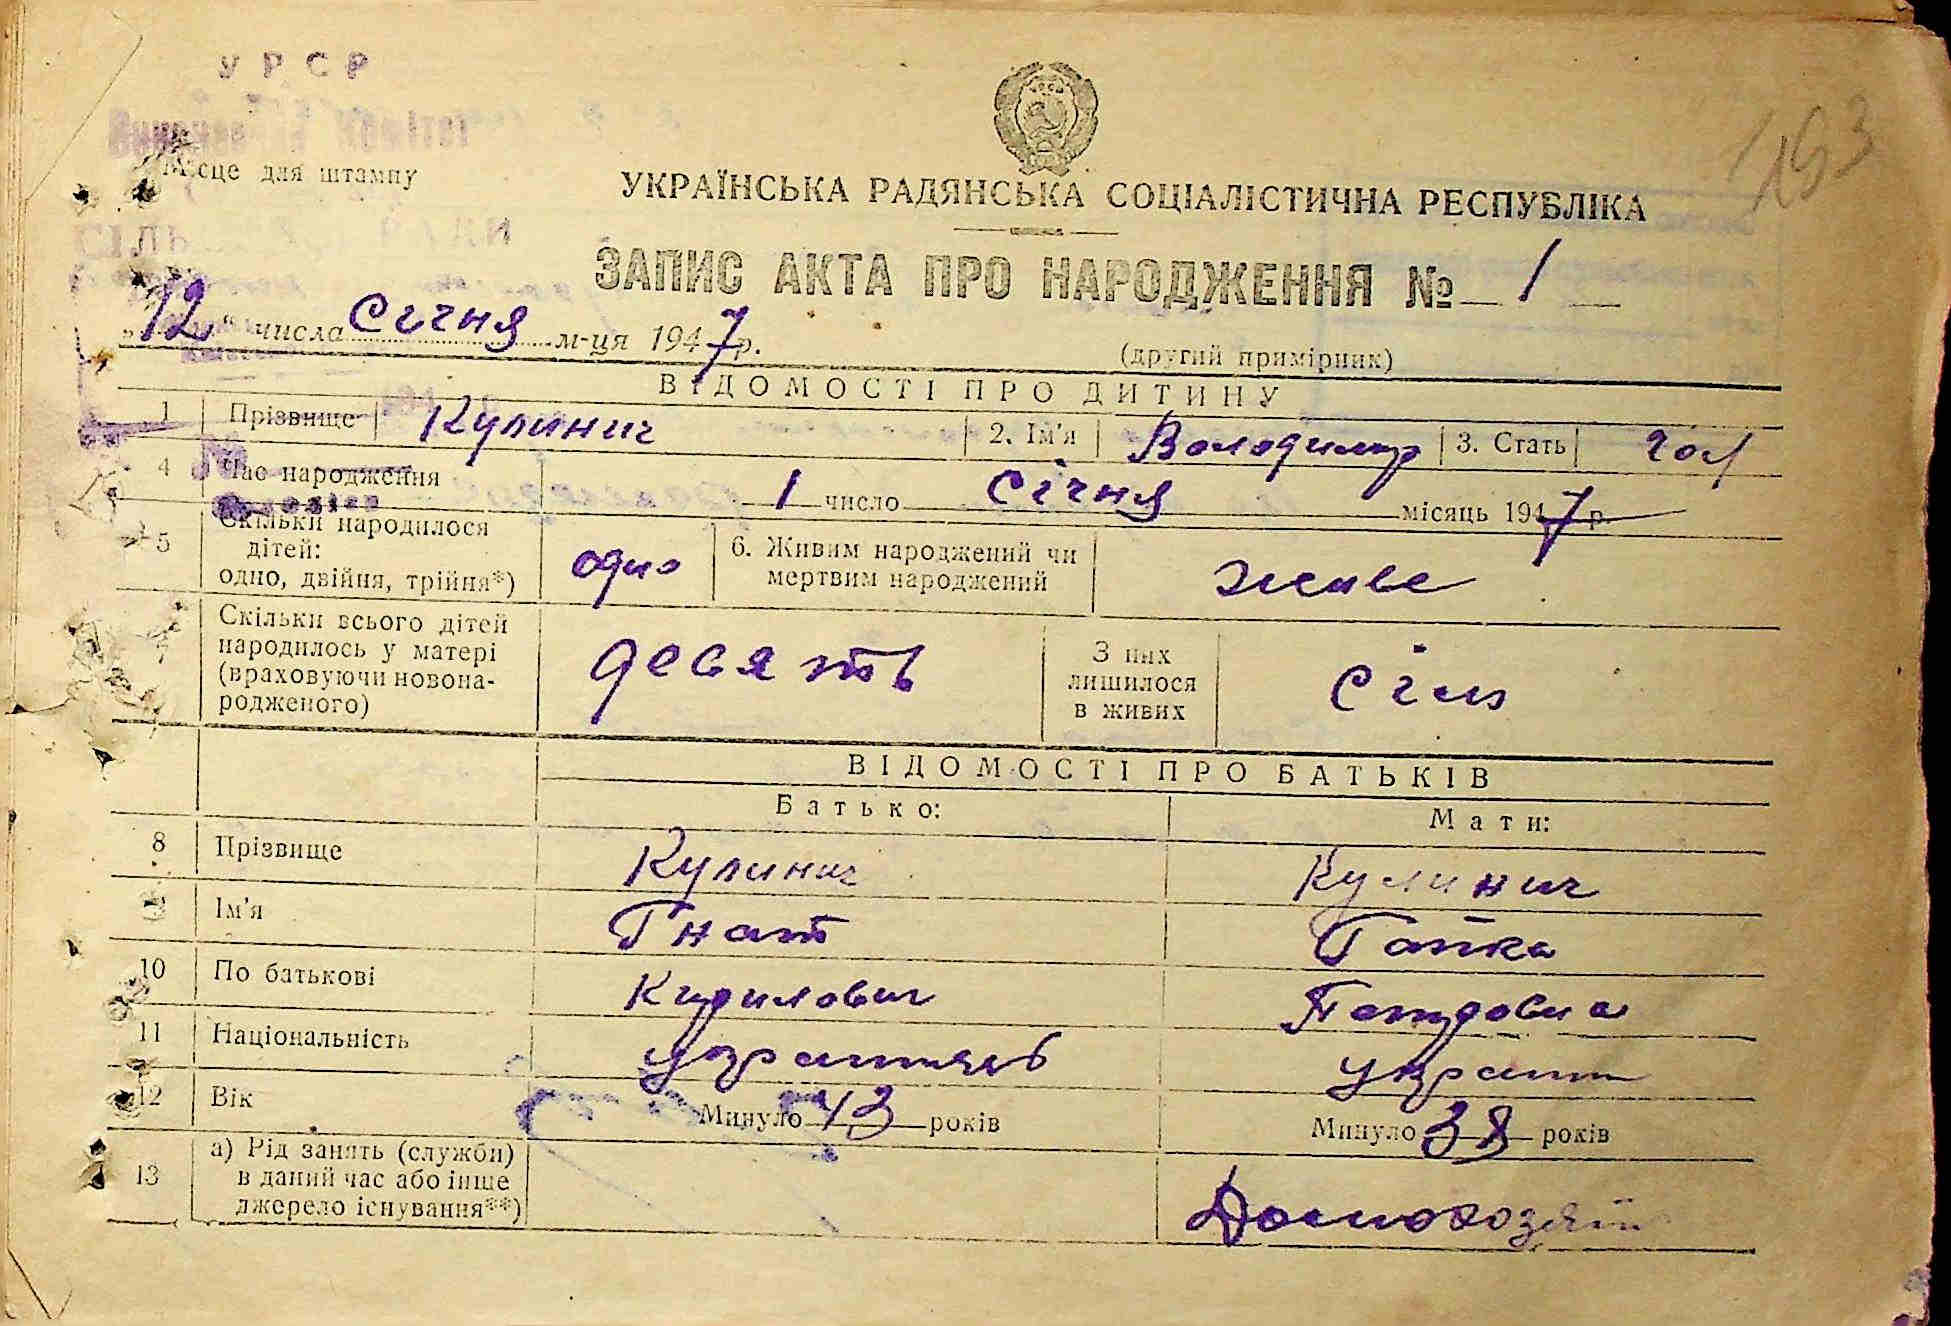 УРСР
Виконавчий Комітет
Місце для штампу
153
УКРАЇНСЬКА РАДЯНСЬКА СОЦІАЛІСТИЧНА РЕСПУБЛІКА
ЗАПИС АКТА ПРО НАРОДЖЕННЯ № 1
„12“ числа січня м-ця 1947 р.
(другий примірник)
ВІДОМОСТІ ПРО ДИТИНУ
1 Прізвище Кулинич 2. Ім'я Володимир 3. Стать чол
4 Час народження 1 число січня місяць 1947 р.
5 Скільки народилося дітей: одно, двійня, трійня*) одно 6. Живим народжений чи мертвим народжений живе
Скільки всього дітей народилось у матері (враховуючи новонародженого) десять З них лишилося в живих сім
ВІДОМОСТІ ПРО БАТЬКІВ
Батько: Мати:
8 Прізвище Кулинич Кулинич
9 Ім'я Гнат Гапка
10 По батькові Кирилович
11 Національність українець україн
12 Вік Минуло 43 років Минуло 38 років
13 а) Рід занять (служби) в даний час або інше джерело існування**) Домохозяй